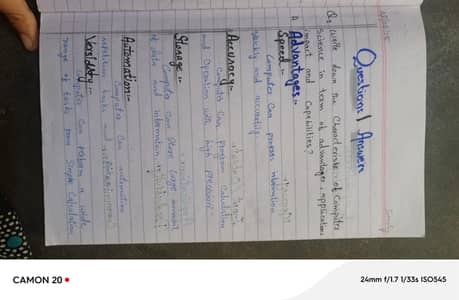 Questions / Answer
Q: write down the Characteristic of Computer
Science term of advantages, application
and Capabilities?
Advantages:-
Speed:-
Computer Can process information
quickly and accurately.
Accuracy:-
Computer Can perform Calculation
and Operation with high precision.
Storage:-
Computer Can Store large amount
of data and information
Automation:-
Computer Can automation
repetitive tasks and
Versatility:-
Computer Can perform a wide
range of tasks from Simple Calculation
CAMON 20
24mm f/1.7 1/33s ISO545